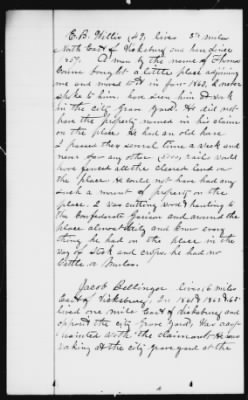 E. B. Willis 49. lives 5½ miles
North East of Vicksburg one here since
1859. A man by the name of Thomas
bought a little place adjoining
me and moved to it in Jan- 1863. I never
spoke to him, have seen him at work
in the city Grave Yard. He did not
have the property named in his claim
on the place. He had an old horse
I passed there several times a week and
never saw any other. 5000 rails would
have fenced all the cleared land on
the place. He could not have had any
such a amount of property on the
place. I was cutting wood & hauling to
the Confederate Garison and around the
place almost daily and know every
thing he had on the place in the
way of Stock and crops. he had no
Cattle or Mules.
Jacob Bellinger lives 6 miles
East of Vicksburg. In 1861 & 1862 & 63
lived one mile East of Vicksburg and
opposit the city Grave Yard, was acq-
uainted with the claimant. He was
working at the city graveyard at the